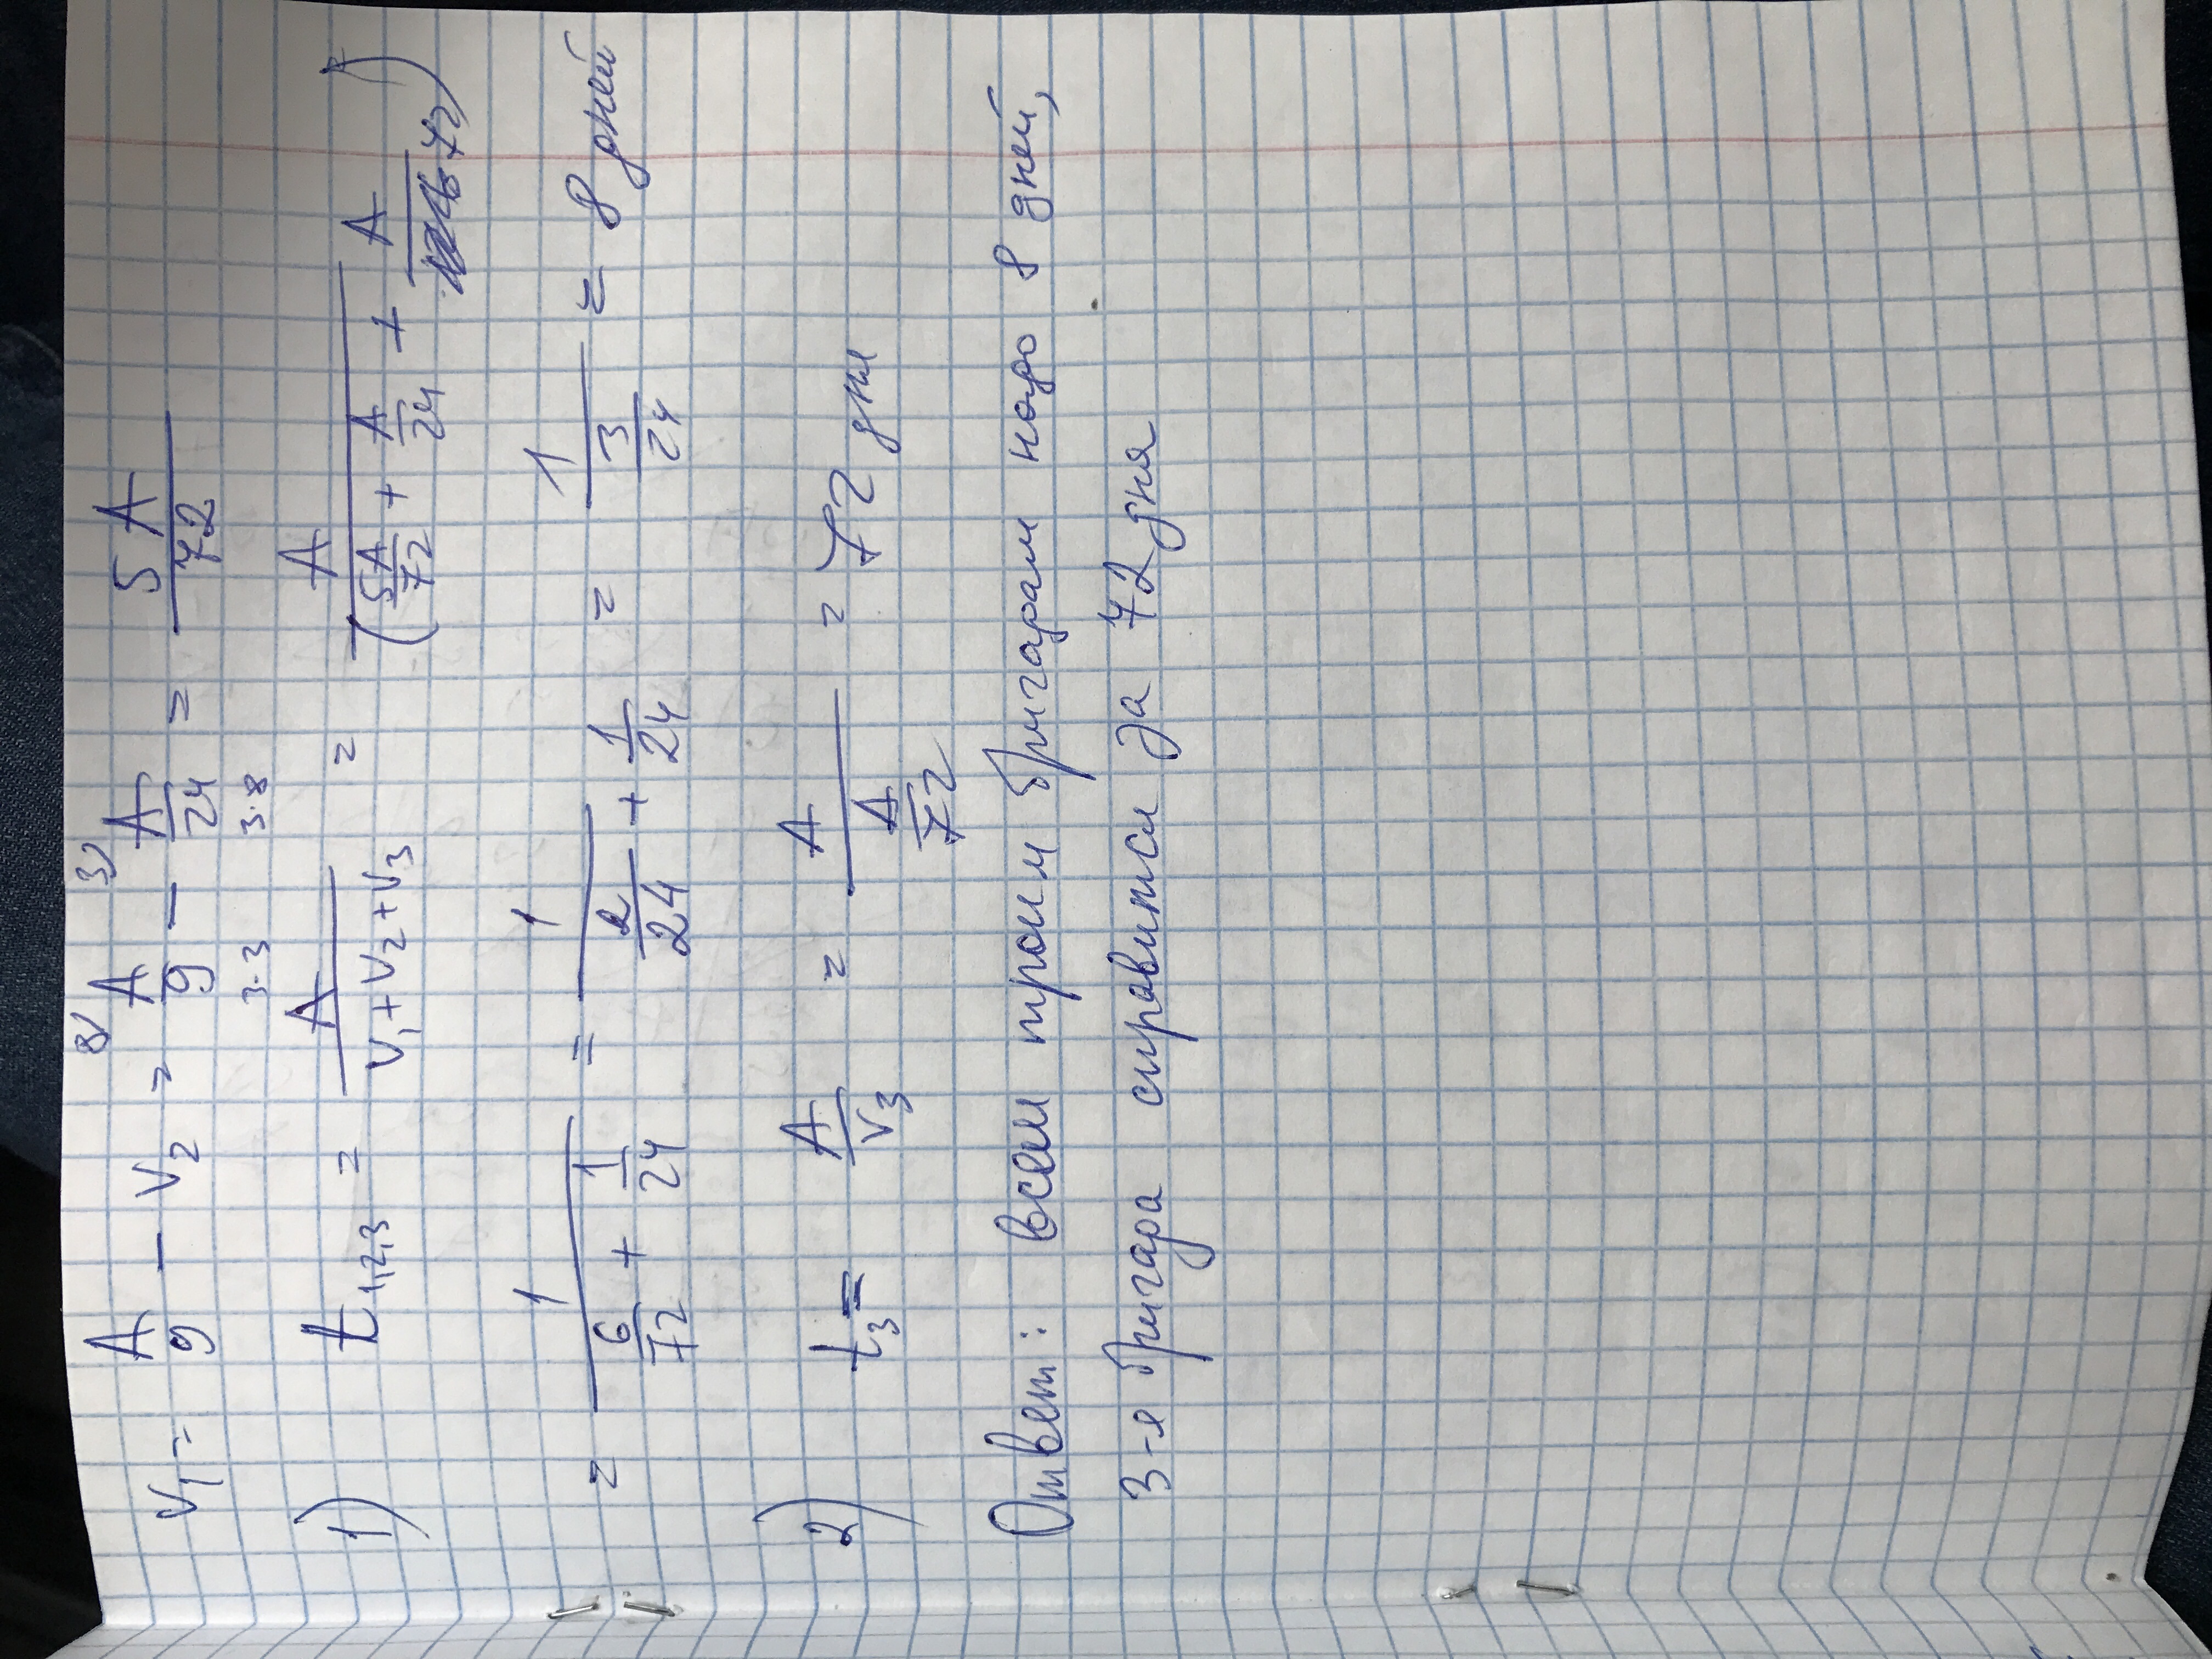 V₁ = A/9 - V₂ = A/9 ⁸⁾ - A/24 ³⁾ = 5A/72
3·3 3·8
1) t₁,₂,₃ = A/(V₁+V₂+V₃) = A/(5A/72 + A/24 + A/72)
= 1/(6/72 + 1/24) = 1/(2/24 + 1/24) = 1/(3/24) = 8 дней
2) t₃ = A/V₃ = A/(A/72) = 72 дня
Ответ: всем троем бригадам надо 8 дней,
3-я бригада справится за 72 дня